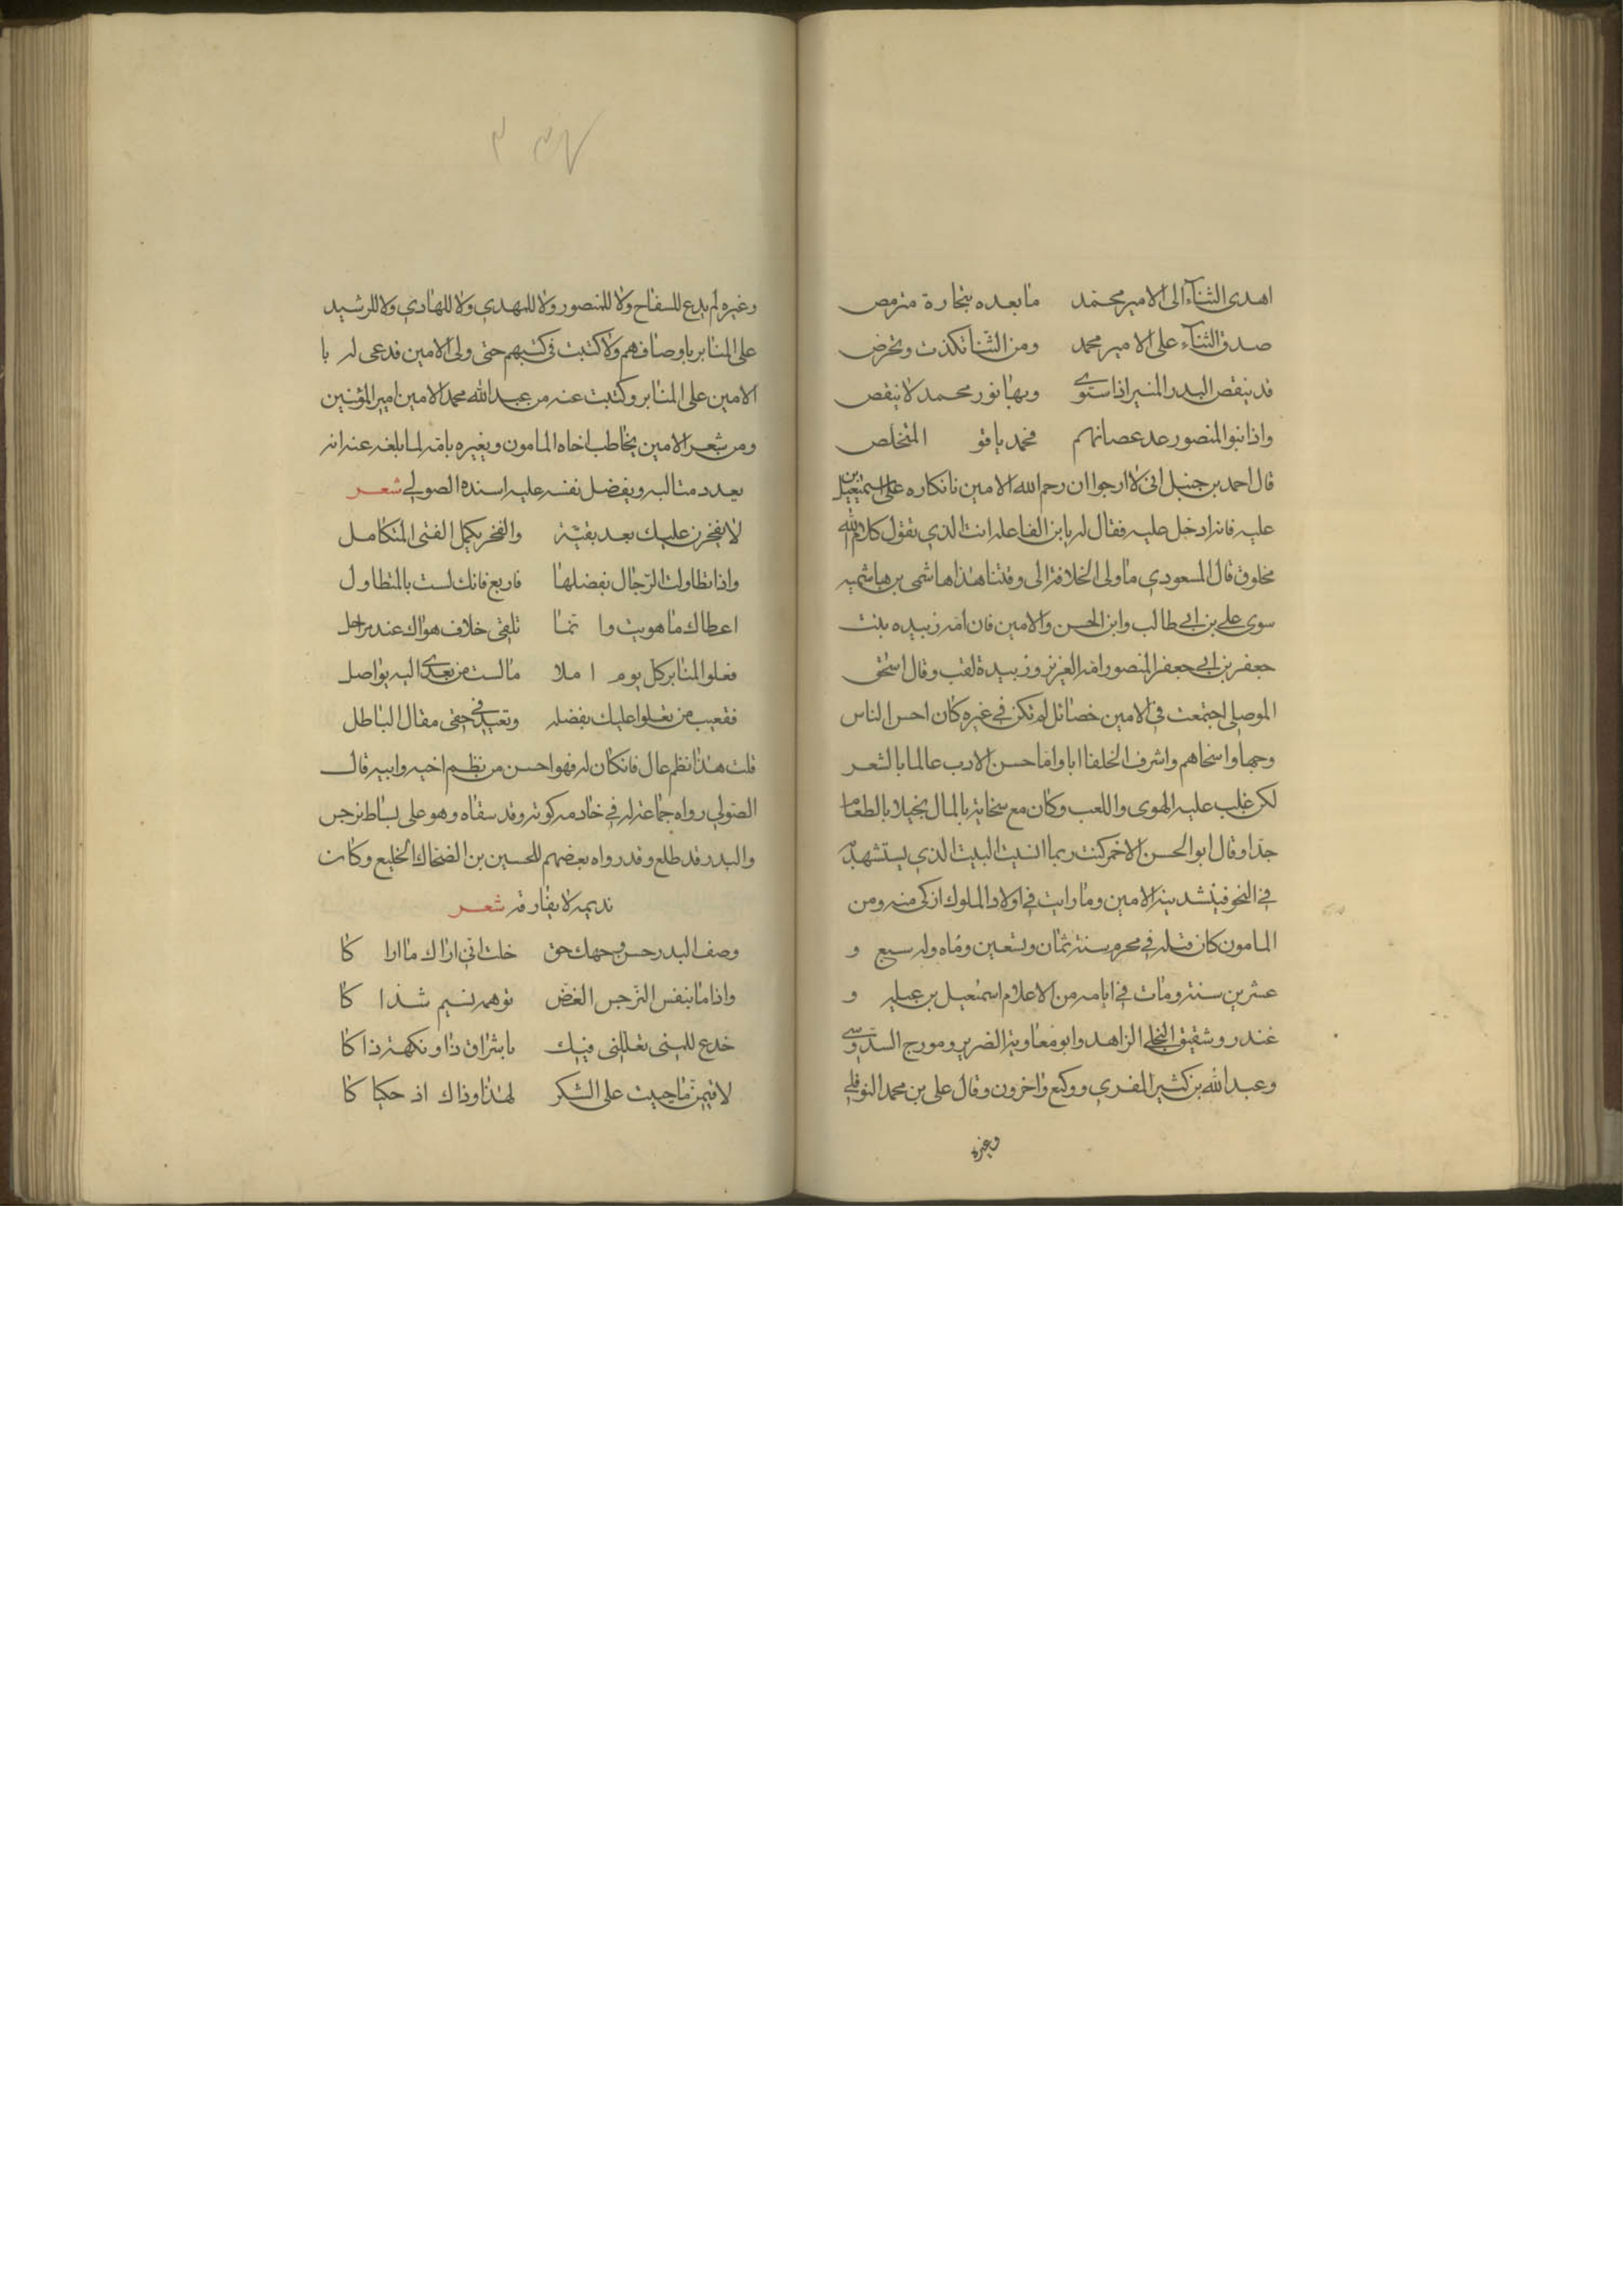 اهدى الثنآء الى الامير محمد ما بعده بتجارة متربص
صدق الثنآء على الامير محمد ومن الثنا تكذب وتخرص
قد ينقص البدر المنير اذا استوى وبها نور محمد لا ينقص
واذا بنوا المنصور عد عصانهم فمحمد ياقو المتخلص
قال احمد بن حنبل انى لا ارجوا ان رحم الله الامين بانكاره على اسمعيل بن
عليه فانه ادخل عليه فقال له يا بن الفاعله انت الذي تقول كلام الله
مخلوق قال المسعودي ما ولى الخلافة الى وقتنا هذا هاشمى بن هاشميه
سوى علي بن ابي طالب وابن الحسن والامين فان امه زبيده بنت
جعفر بن ابي جعفر المنصور امة العزيز وزبيدة لقب وقال اسحق
الموصلى اجتمعت في الامين خصائل لم تكن في غيره كان احسن الناس
وجها واسخاهم واشرف الخلفا ابا واما حسن الادب عالما بالشعر
لكن غلب عليه الهوى واللعب وكان مع سخايه بالمال بخيلا بالطعام
جدا وقال ابو الحسن الاحمر كنت ربما انسيت البيت الذي يستشهد به
في النحو فينشدنيه الامين وما رايت في اولاد الملوك ازكى منه ومن
المامون كان قتله في محرم سنة ثمان وتسعين ومأه وله سبع و
عشرين سنة ومات في ايامه من الاعلام اسمعيل بن عليه و
غندر وشقيق البلخي الزاهد وابو معاوية الضرير ومورج السدوسي
وعبد الله بن كثير المقري ووكيع واخرون وقال على بن محمد النوفلي
وغيره
وغيره لم يدع للسفاح ولا للمنصور ولا للمهدي ولا للهادي ولا للرشيد
على المنابر باوصافهم ولا كتبت فى كتبهم حتى ولى الامين فدعى له با
الامين على المنابر وكتبت عنه من عبد الله محمد الامين امير المؤمنين
ومن شعر الامين يخاطب اخاه المامون ويعيره بامه لما بلغه عنه انه
يعدد مثالبه ويفضل نفسه عليه اسنده الصولي شعر
لا تفخرن عليك بعد بقية والفخر يكمل الفتى المتكامل
واذا تطاولت الرجال بفضلها فاربع فانك لست بالمتطاول
اعطاك ما هويت وا نما تلقى خلاف هواك عند مراجل
فعلو المنابر كل يوم املا ما لست من بعدي اليه بواصل
فتعيب من يعلوا عليك بفضله وتعيد في حقى مقال الباطل
قلت هذا نظم عال فان كان له فهو احسن من نظم اخيه وابيه قال
الصولي رواه جماعة له في خادمه كوثر وقد سقاه وهو على بساط نرجس
والبدر قد طلع وقد رواه بعضهم للحسين بن الضحاك الخليع وكان
نديمه لا يفارقه شعر
وصف البدر حسن وجهك حتى خلت انى اراك ما ارا كا
واذا ما تنفس النرجس الغض توهمه نسيم شذا كا
خدع للمنى تعللنى فيك باشراق ذا ونكهة ذا كا
لاقيمن ما حييت على الشكر لهذا وذاك اذ حكيا كا